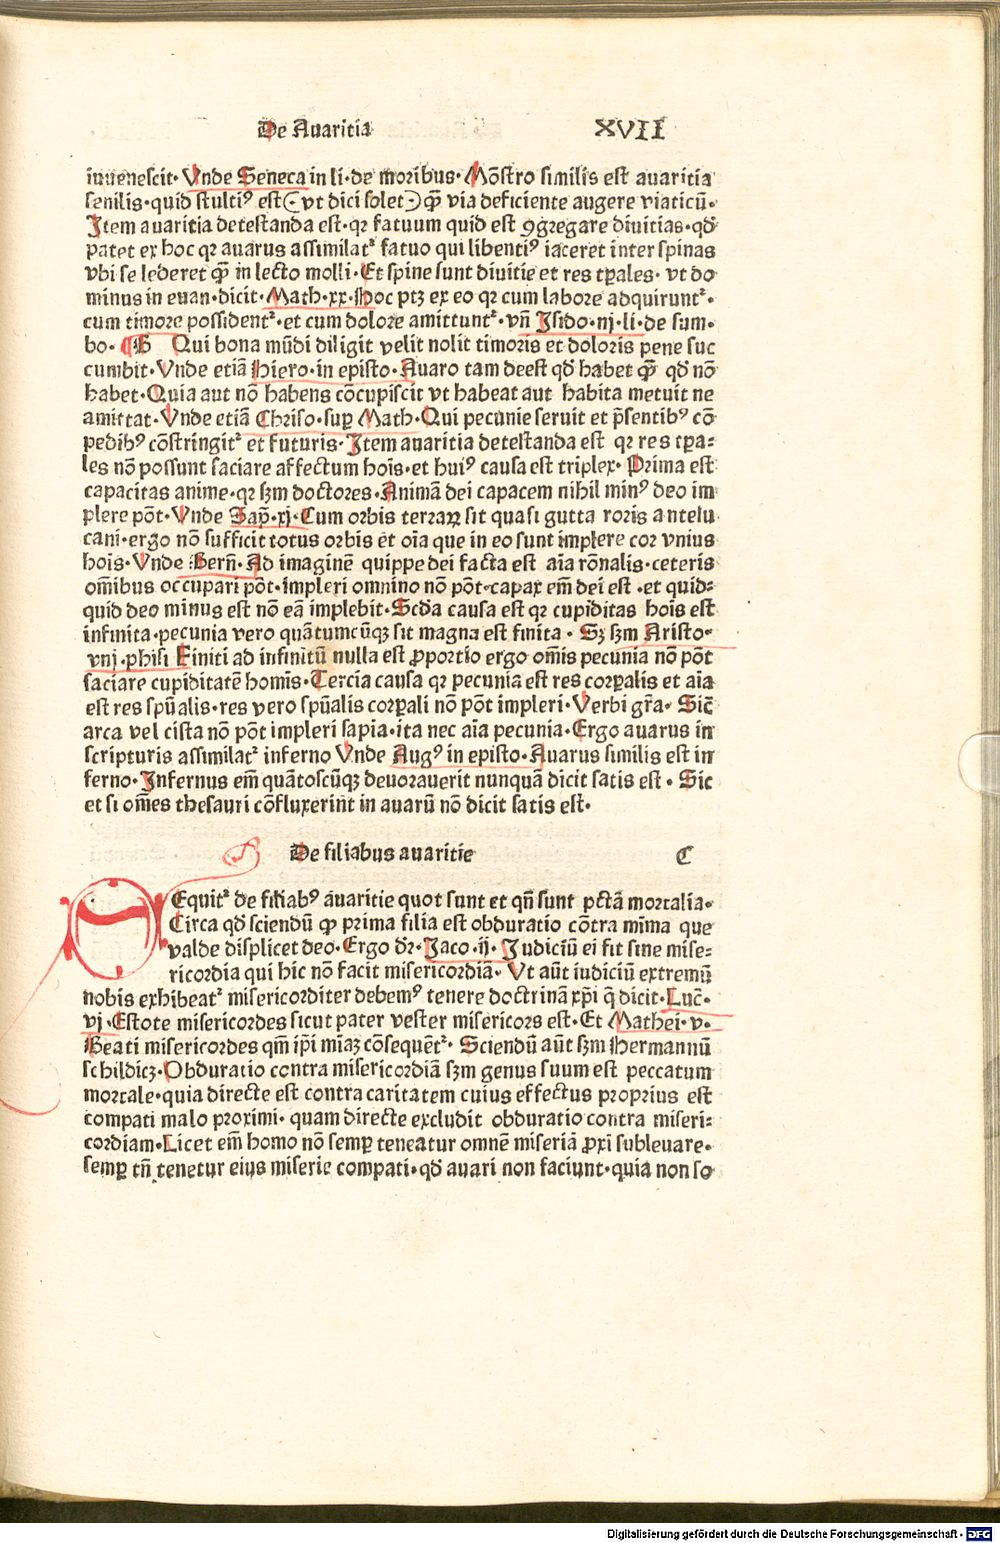 De Auaritia XVII
iuuenescit· Vnde Seneca in li·de moribus· Mōstro similis est auaritia
senilis·quid stultiꝰ est(·vt dici solet·)q̄ꝫ via deficiente augere viaticū·
Item auaritia detestanda est·qꝛ fatuum quid est ꝯgregare diuitias·qđ
patet ex hoc qꝛ auarus assimilatᷣ fatuo qui libentiꝰ iaceret inter spinas
vbi se lederet q̄ꝫ in lecto molli·Et spine sunt diuitie et res tꝑales· vt do
minus in euan·dicit·Math·xx·Hoc ptꝫ ex eo qꝛ cum labore adquiruntᷣ·
cum timore possidentᷣ·et cum dolore amittuntᷣ·vñ Isido·nj·li·de sum·
bo· ¶B Qui bona mūdi diligit velit nolit timoris et doloris pene suc
cumbit·Vnde etiā Hiero·in episto·Auaro tam deest qđ habet q̄ꝫ qđ nō
habet·Quia aut nō habens cōcupiscit vt habeat aut habita metuit ne
amittat·Vnde etiā Chriso·suꝑ Math·Qui pecunie seruit et p̄sentibꝰ cō
pedibꝰ cōstringitᷣ et futuris·Item auaritia detestanda est qꝛ res tꝑa⸗
les nō possunt saciare affectum hoīs·et huiꝰ causa est triplex·Prima est
capacitas anime·qꝛ sꝫm doctores·Animā dei capacem nihil minꝰ deo im
plere pōt·Vnde Sap̄·xj·Cum orbis terraꝝ sit quasi gutta roris antelu
cani·ergo nō sufficit totus orbis et oīa que in eo sunt implere cor vnius
hoīs·Vnde Berñ·Ad imaginē quippe dei facta est aīa rōnalis·ceteris
oīmbus occupari pōt·impleri omnino nō pōt·capax em̄ dei est ·et quid⸗
quid deo minus est nō eā implebit·Scđa causa est qꝛ cupiditas hoīs est
infinita·pecunia vero quātumcūqꝫ sit magna est finita · Sꝫ sꝫm Aristo·
vnj·phisi Finiti ad infinitū nulla est ꝓportio ergo omīs pecunia nō pōt
saciare cupiditatē homīs·Tercia causa qꝛ pecunia est res corꝑalis et aīa
est res spūalis·res vero spūalis corꝑali nō pōt impleri·Verbi grā· Sic̄
arca vel cista nō pōt impleri sapīa·ita nec aīa pecunia·Ergo auarus in
scripturis assimilatᷣ inferno Vnde Augꝰ in episto·Auarus similis est in
ferno·Infernus em̄ quātoscūqꝫ deuorauerit nunquā dicit satis est · Sic
et si omēs thesauri cōfluxerint in auarū nō dicit satis est·
De filiabus auaritie C
SEquitᷣ de filiabꝰ auaritie quot sunt et qñ sunt pctā mortalia·
Circa qđ sciendū ꝙ prima filia est obduratio cōtra mīma que
valde displicet deo·Ergo dꝛ·Jaco·ij·Judiciū ei fit sine mise⸗
ricordia qui hic nō facit misericordiā· Vt aūt iudiciū extremū
nobis exhibeatᷣ misericorditer debemꝰ tenere doctrinā xp̄i q̄ dicit·Luc̄·
vj·Estote misericordes sicut pater vester misericors est·Et Mathei·v·
Beati misericordes qm̄ ip̄i mīaꝫ cōsequētᷣ· Sciendū aūt sꝫm Hermannū
schildicꝫ·Obduratio contra misericordiā sꝫm genus suum est peccatum
mortale·quia directe est contra caritatem cuius effectus proprius est
compati malo proximi· quam directe excludit obduratio contra miseri⸗
cordiam·Licet em̄ homo nō semꝑ teneatur omnē miseriā ꝓxi subleuare·
semꝑ tñ tenetur eius miserie compati·qđ auari non faciunt·quia non so
Digitalisierung gefördert durch die Deutsche Forschungsgemeinschaft · DFG